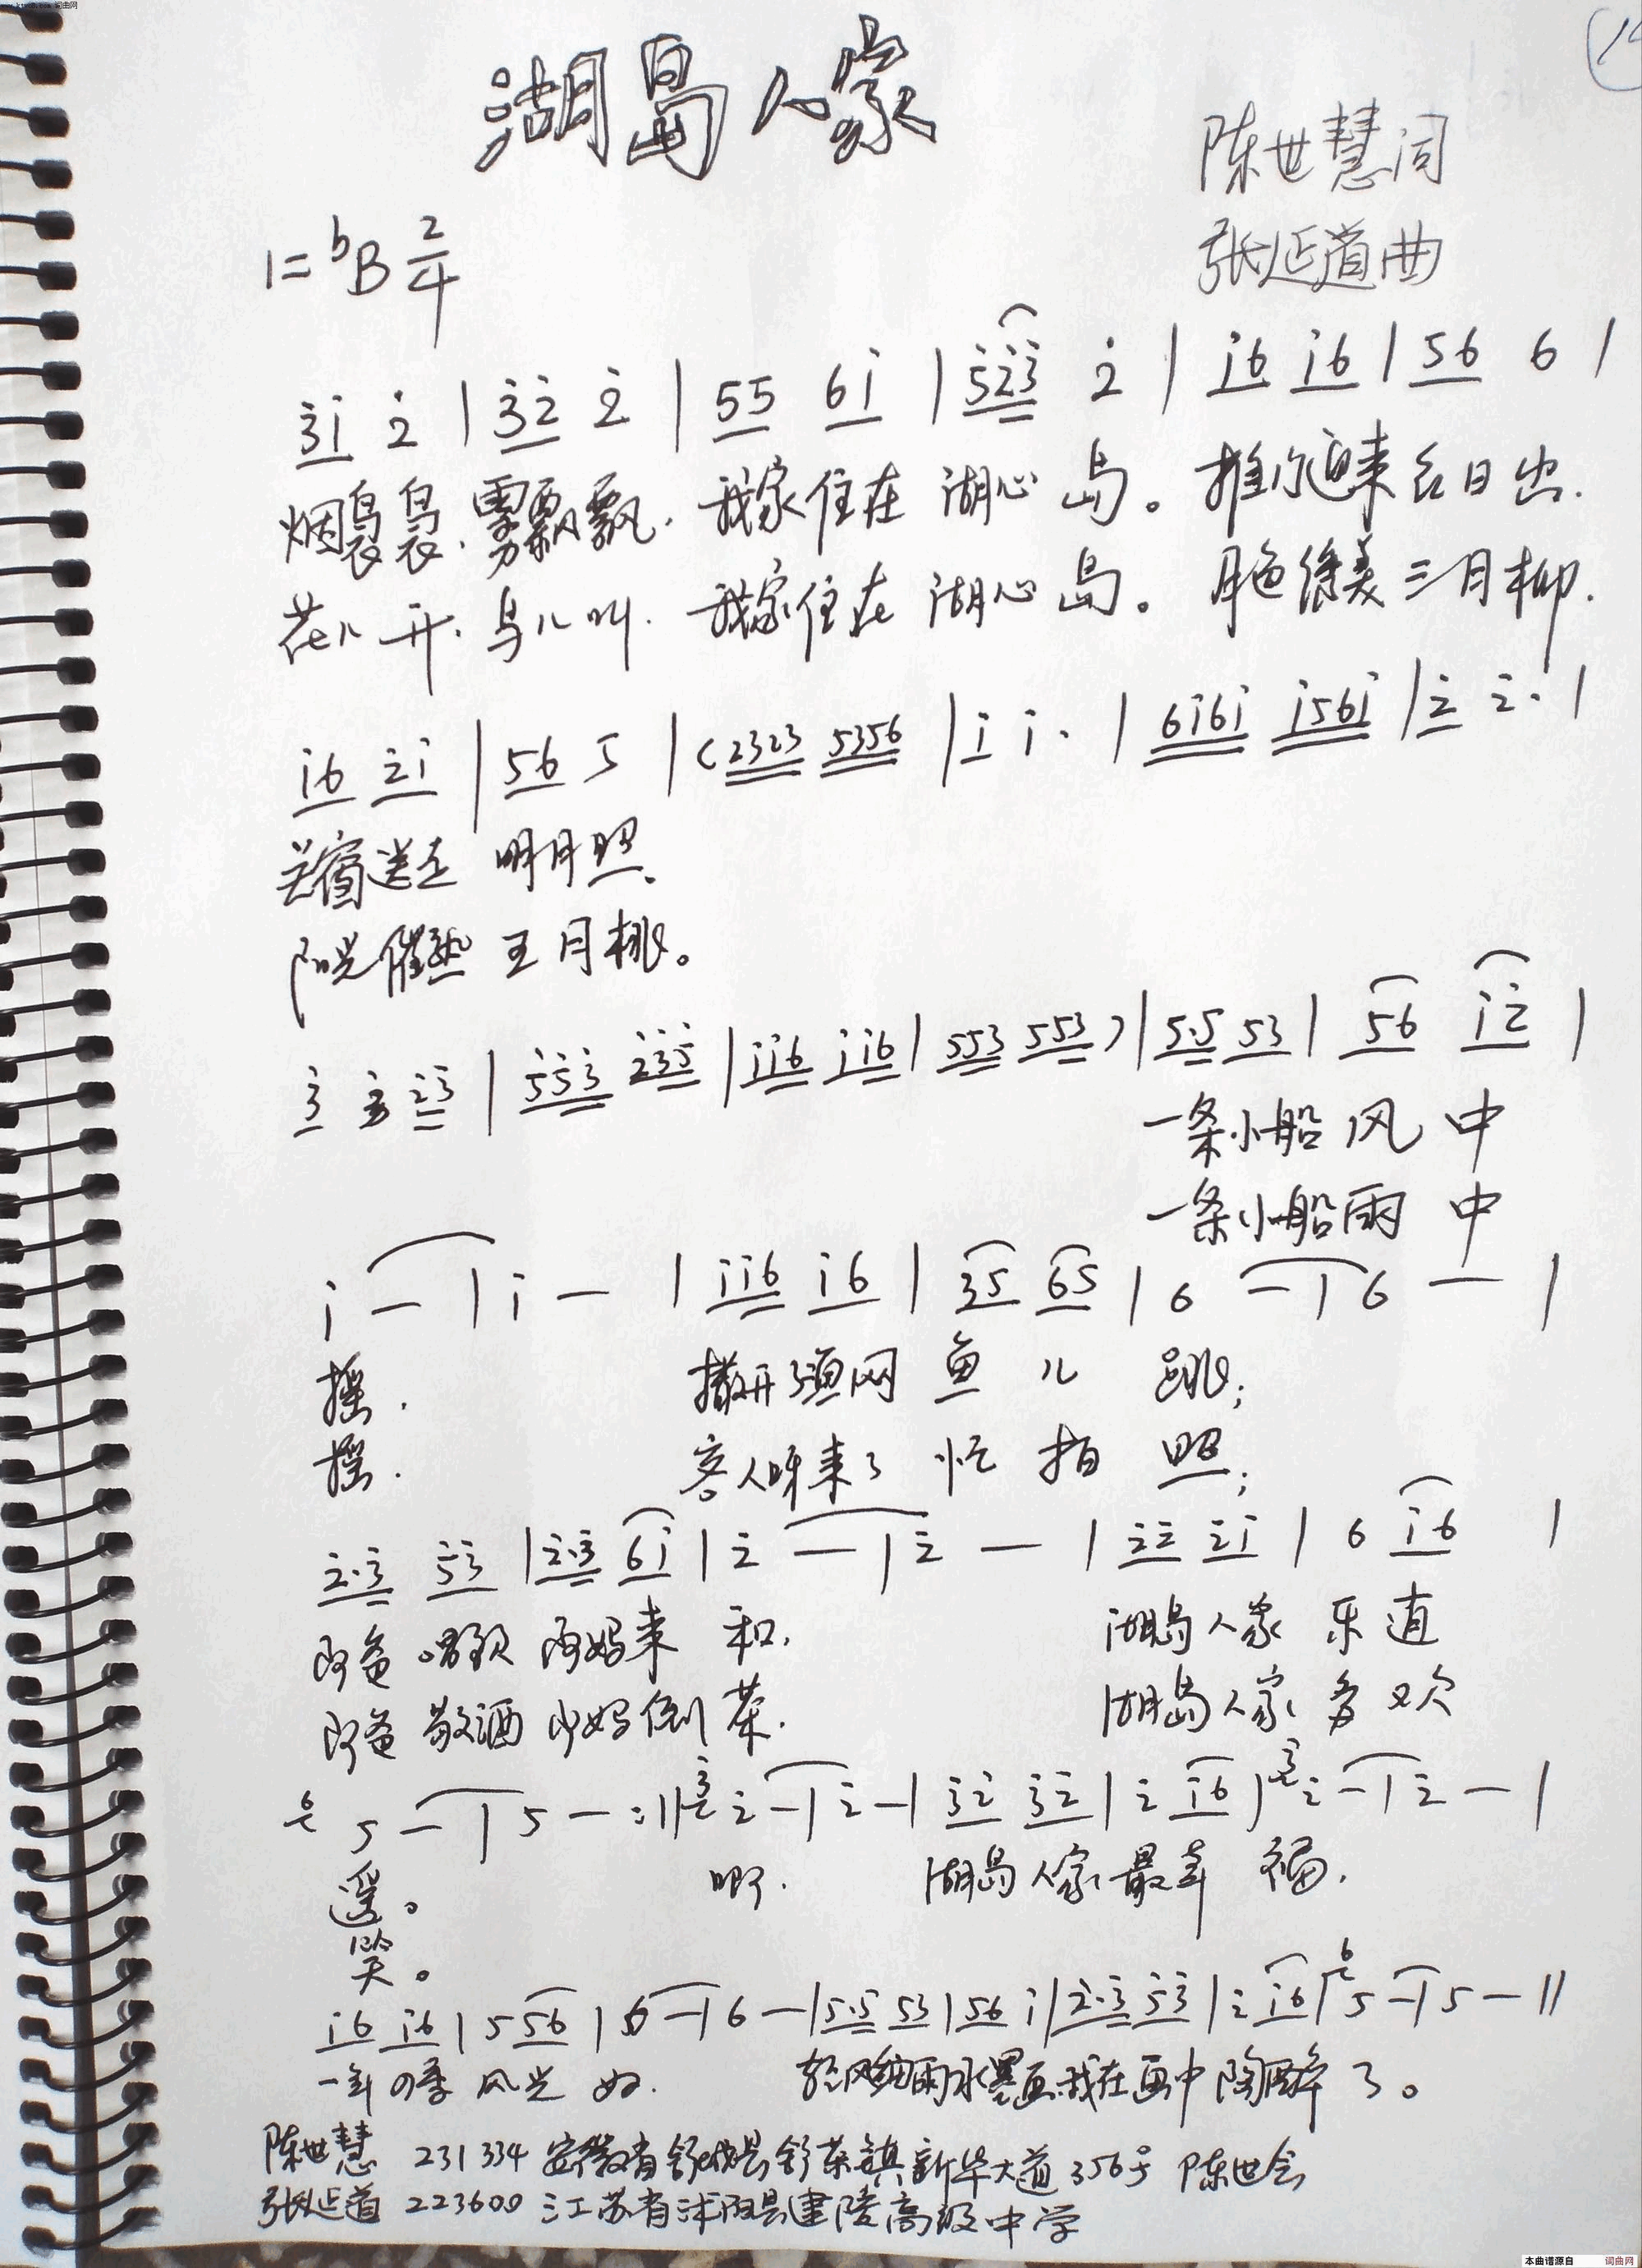 词曲网
湖岛人家
陈世慧词
张延道曲
1=ᵇB 2/4
3̇1̇ 2̇ | 3̇2̇ 2̇ | 55 61̇ | 5̇2̇3̇ 2̇ | 1̇6 1̇6 | 56 6 |
烟袅袅.雾飘飘.我家住在 湖心 岛。推窗迎来红日出.
花儿开.鸟儿叫.我家住在 湖心 岛。月色绿美三月柳.
1̇6 2̇1̇ | 56 5 | (2323 5356 | 1̇ 1̇· | 61̇61̇ 1̇561̇ | 2̇ 2̇· |
关窗送走 明月照.
阳光催熟 五月桃。
3̇ 3̇ 2̇3̇ | 5̇5̇3̇ 2̇3̇5̇ | 1̇1̇6 1̇1̇6 | 553 553 ) | 5·5 53 | 56 1̇2̇ |
一条小船 风 中
一条小船 雨 中
1̇ — | 1̇ — | 1̇1̇6 1̇6 | 35 65 | 6 — | 6 — |
摇. 撒开渔网 鱼 儿 跳;
摇. 客人呀来了 忙 拍 照;
2̇·3̇ 5̇3̇ | 2̇·3̇ 61̇ | 2̇ — | 2̇ — | 2̇2̇ 2̇1̇ | 6 1̇6 |
阿爸 唱歌 阿妈来 和. 湖岛人家 乐 逍
阿爸 敬酒 阿妈倒 茶. 湖岛人家 多 欢
6 5 — | 5 — :‖ 3̇ 2̇ — | 2̇ — | 3̇2̇ 3̇2̇ | 2̇ 1̇6 | 3̇ 2̇ — | 2̇ — |
遥。 啊. 湖岛人家最幸 福.
笑。
1̇6 1̇6 | 5 56 | 6 — | 6 — | 5·5 53 | 56 1̇ | 2̇·3̇ 5̇3̇ | 2̇ 1̇6 | 6 5 — | 5 — ‖
一年四季 风光 好. 轻风细雨水墨画我在画中 陶醉 了。
陈世慧 231334 安徽省舒城县舒茶镇新华大道356号 陈世会
张延道 223600 江苏省沭阳县建陵高级中学
本曲谱源自 词曲网